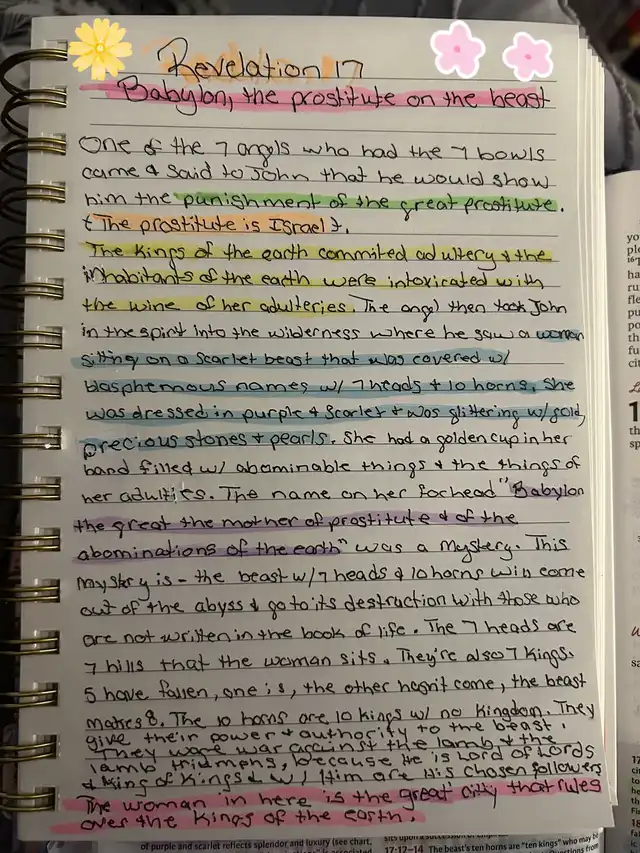 Revelation 17
Babylon, the prostitute on the beast
One of the 7 angels who had the 7 bowls
came & said to John that he would show
him the punishment of the great prostitute.
{The prostitute is Israel}.
The Kings of the earth commited adultery & the
inhabitants of the earth were intoxicated with
the wine of her adulteries. The angel then took John
in the spirit into the wilderness where he saw a woman
sitting on a scarlet beast that was covered w/
blasphemous names w/ 7 heads & 10 horns. She
was dressed in purple & scarlet & was glittering w/ gold,
precious stones & pearls. She had a golden cup in her
hand filled w/ abominable things & the things of
her adulties. The name on her forhead "Babylon
the great the mother of prostitute & of the
abominations of the earth" was a mystery. This
mystery is - the beast w/ 7 heads & 10 horns will come
out of the abyss & go to its destruction with those who
are not written in the book of life. The 7 heads are
7 hills that the woman sits. They're also 7 kings.
5 have fallen, one is, the other hasn't come, the beast
makes 8. The 10 horns are 10 kings w/ no Kingdom. They
give their power & authority to the beast.
They wage war against the lamb, & the
lamb triumphs, because He is Lord of Lords
& King of Kings & w/ Him are His chosen followers
The woman in here is the great city that rules
over the Kings of the earth.
of purple and scarlet reflects splendor and luxury (see chart,
17:12–14 The beast's ten horns are "ten kings" who may be